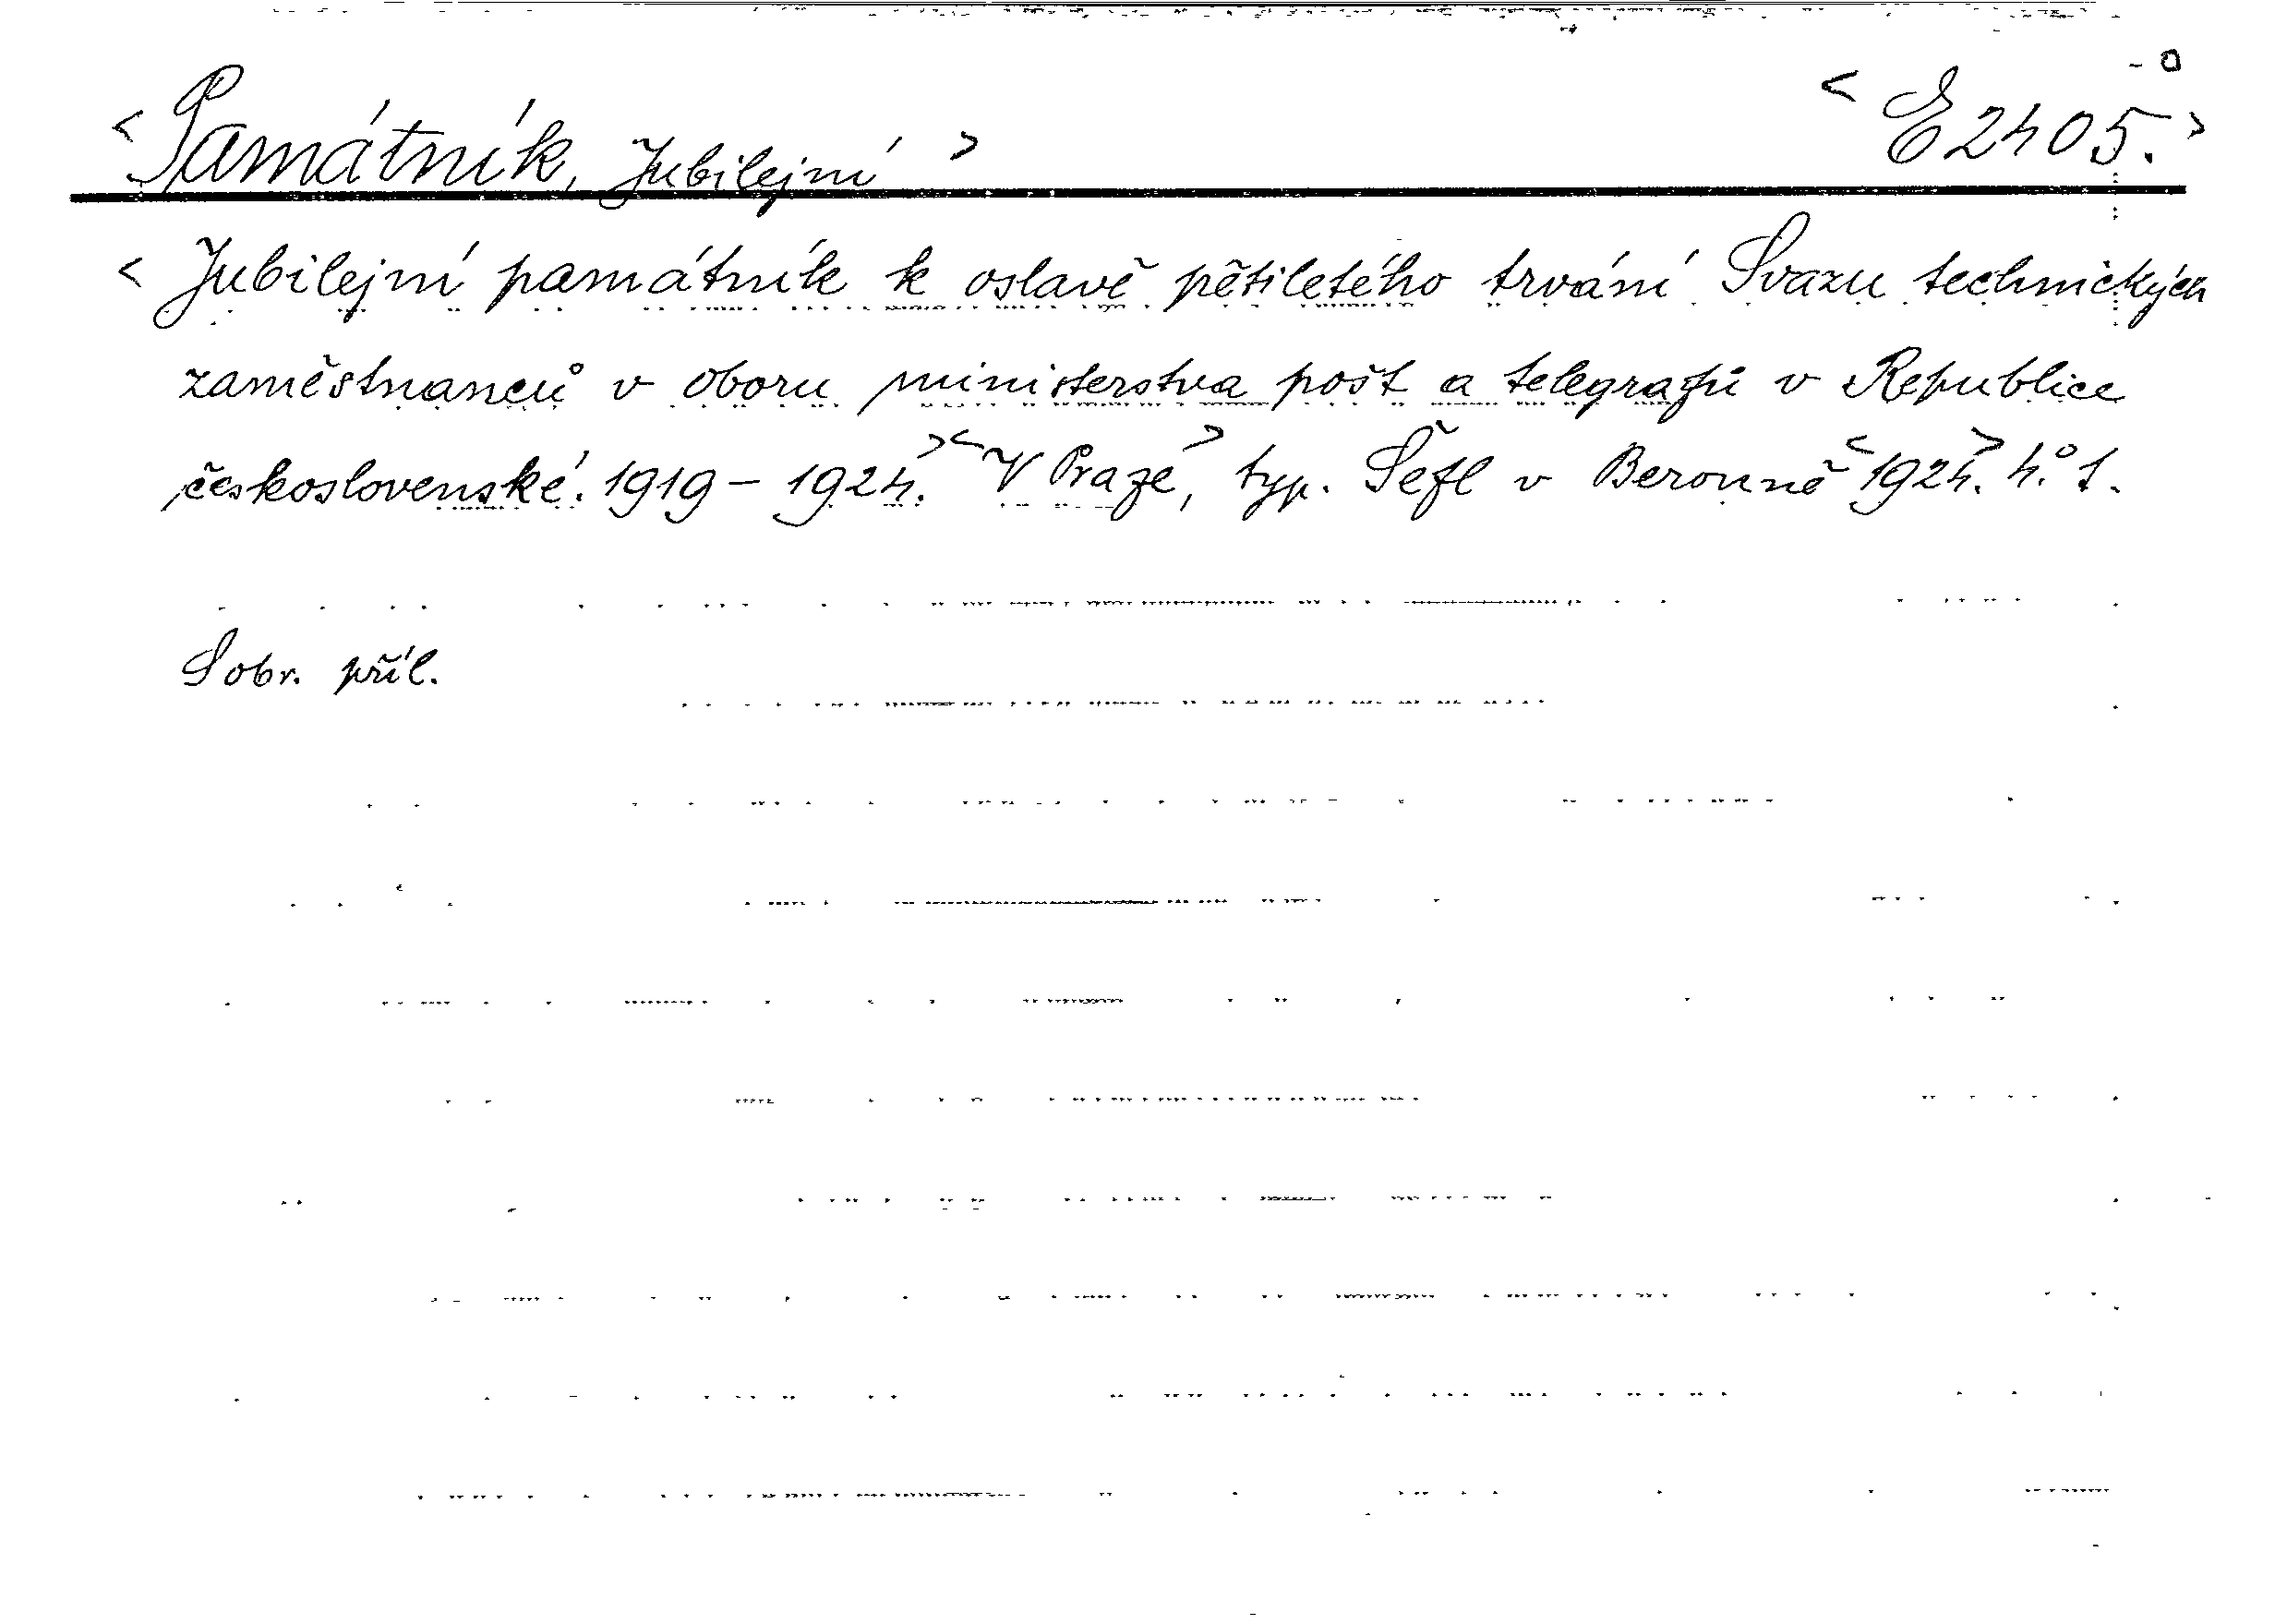 <Památník, Jubilejní> <E2405.>
<Jubilejní památník k oslavě pětiletého trvání Svazu technických
zaměstnanců v oboru ministerstva pošt a telegrafů v Republice
československé. 1919 – 1924.> <V Praze>, typ. Šefl v Berouně <1924.> 4.° 1.
S obr. příl.